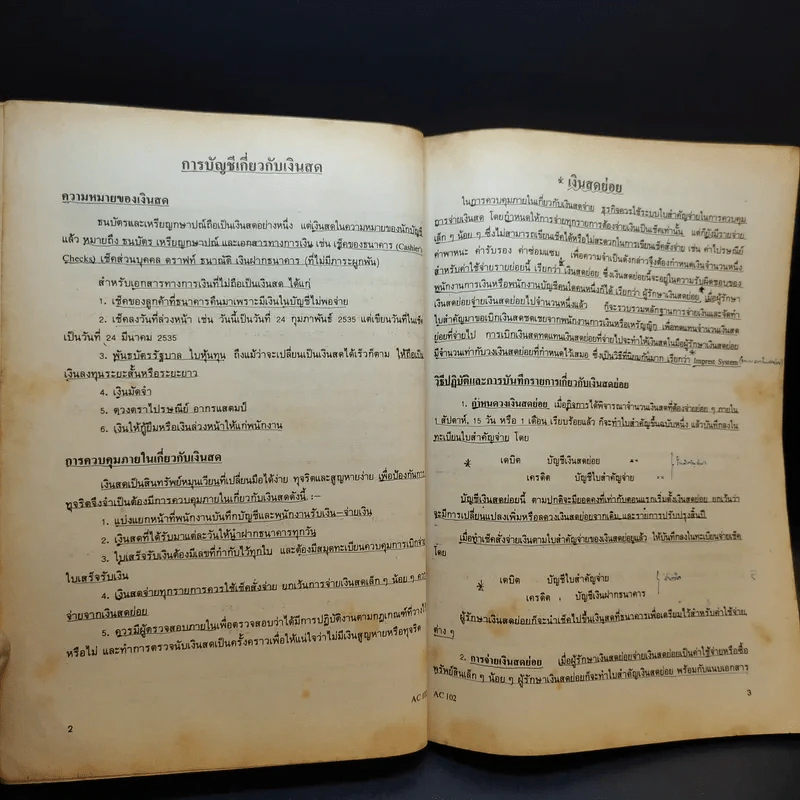 การบัญชีเกี่ยวกับเงินสด
ความหมายของเงินสด
ธนบัตรและเหรียญกษาปณ์ถือเป็นเงินสดอย่างหนึ่ง แต่เงินสดในความหมายของนักบัญชี
แล้ว หมายถึง ธนบัตร เหรียญกษาปณ์ และเอกสารทางการเงิน เช่น เช็คของธนาคาร (Cashier's
Checks) เช็คส่วนบุคคล ดราฟท์ ธนาณัติ เงินฝากธนาคาร (ที่ไม่มีภาระผูกพัน)
สำหรับเอกสารทางการเงินที่ไม่ถือเป็นเงินสด ได้แก่
1. เช็คของลูกค้าที่ธนาคารคืนมาเพราะมีเงินในบัญชีไม่พอจ่าย
2. เช็คลงวันที่ล่วงหน้า เช่น วันนี้เป็นวันที่ 24 กุมภาพันธ์ 2535 แต่เขียนวันที่ในเช็ค
เป็นวันที่ 24 มีนาคม 2535
3. พันธบัตรรัฐบาล ใบหุ้นทุน ถึงแม้ว่าจะเปลี่ยนเป็นเงินสดได้เร็วก็ตาม ให้ถือเป็น
เงินลงทุนระยะสั้นหรือระยะยาว
4. เงินมัดจำ
5. ดวงตราไปรษณีย์ อากรแสตมป์
6. เงินให้กู้ยืมหรือเงินล่วงหน้าให้แก่พนักงาน
การควบคุมภายในเกี่ยวกับเงินสด
เงินสดเป็นสินทรัพย์หมุนเวียนที่เปลี่ยนมือได้ง่าย ทุจริตและสูญหายง่าย เพื่อป้องกันการ
ทุจริตจึงจำเป็นต้องมีการควบคุมภายในเกี่ยวกับเงินสดดังนี้ :—
1. แบ่งแยกหน้าที่พนักงานบันทึกบัญชีและพนักงานรับเงิน—จ่ายเงิน
2. เงินสดที่ได้รับมาแต่ละวันให้นำฝากธนาคารทุกวัน
3. ใบเสร็จรับเงินต้องมีเลขที่กำกับไว้ทุกใบ และต้องมีสมุดทะเบียนควบคุมการเบิกจ่าย
ใบเสร็จรับเงิน
4. เงินสดจ่ายทุกรายการควรใช้เช็คสั่งจ่าย ยกเว้นการจ่ายเงินสดเล็ก ๆ น้อย ๆ ควร
จ่ายจากเงินสดย่อย
5. ควรมีผู้ตรวจสอบภายในเพื่อตรวจสอบว่าได้มีการปฏิบัติงานตามกฎเกณฑ์ที่วางไว้
หรือไม่ และทำการตรวจนับเงินสดเป็นครั้งคราวเพื่อให้แน่ใจว่าไม่มีเงินสูญหายหรือทุจริต
AC 102
2
* เงินสดย่อย
ในการควบคุมภายในเกี่ยวกับเงินสดจ่าย ธุรกิจควรใช้ระบบใบสำคัญจ่ายในการควบคุม
การจ่ายเงินสด โดยกำหนดให้การจ่ายทุกรายการต้องจ่ายเงินเป็นเช็คเท่านั้น แต่ก็ยังมีรายจ่าย
เล็ก ๆ น้อย ๆ ซึ่งไม่สามารถเขียนเช็คได้หรือไม่สะดวกในการเขียนเช็คสั่งจ่าย เช่น ค่าไปรษณีย์
ค่าพาหนะ ค่ารับรอง ค่าซ่อมแซม เพื่อความจำเป็นดังกล่าวจึงต้องกำหนดเงินจำนวนหนึ่ง
สำหรับค่าใช้จ่ายรายย่อยนี้ เรียกว่า เงินสดย่อย ซึ่งเงินสดย่อยนี้จะอยู่ในความรับผิดชอบของ
พนักงานการเงินหรือพนักงานบัญชีคนใดคนหนึ่งก็ได้ เรียกว่า ผู้รักษาเงินสดย่อย เมื่อผู้รักษา
เงินสดย่อยจ่ายเงินสดย่อยไปจำนวนหนึ่งแล้ว ก็จะรวบรวมหลักฐานการจ่ายเงินและจัดทำ
ใบสำคัญมาขอเบิกเงินสดชดเชยจากพนักงานการเงินหรือเหรัญญิก เพื่อทดแทนจำนวนเงินสด
ย่อยที่จ่ายไป การเบิกเงินสดทดแทนเงินสดย่อยที่จ่ายไปจะทำให้เงินสดในมือผู้รักษาเงินสดย่อย
มีจำนวนเท่ากับวงเงินสดย่อยที่กำหนดไว้เสมอ ซึ่งเป็นวิธีที่นิยมกันมาก เรียกว่า Imprest System
วิธีปฏิบัติและการบันทึกรายการเกี่ยวกับเงินสดย่อย
1. กำหนดวงเงินสดย่อย เมื่อกิจการได้พิจารณาจำนวนเงินสดที่ต้องจ่ายย่อย ๆ ภายใน
1 สัปดาห์, 15 วัน หรือ 1 เดือน เรียบร้อยแล้ว ก็จะทำใบสำคัญขึ้นฉบับหนึ่ง แล้วบันทึกลงใน
ทะเบียนใบสำคัญจ่าย โดย
* เดบิต บัญชีเงินสดย่อย
เครดิต บัญชีใบสำคัญจ่าย
บัญชีเงินสดย่อยนี้ ตามปกติจะมียอดคงที่เท่ากับตอนแรกเริ่มตั้งเงินสดย่อย ยกเว้นว่า
จะมีการเปลี่ยนแปลงเพิ่มหรือลดวงเงินสดย่อยจากเดิม และรายการปรับปรุงสิ้นปี
เมื่อทำเช็คสั่งจ่ายเงินตามใบสำคัญจ่ายของเงินสดย่อยแล้ว ให้บันทึกลงในทะเบียนจ่ายเช็ค
โดย
* เดบิต บัญชีใบสำคัญจ่าย
เครดิต บัญชีเงินฝากธนาคาร
ผู้รักษาเงินสดย่อยก็จะนำเช็คไปขึ้นเงินสดที่ธนาคารเพื่อเตรียมไว้สำหรับค่าใช้จ่าย
ต่าง ๆ
2. การจ่ายเงินสดย่อย เมื่อผู้รักษาเงินสดย่อยจ่ายเงินสดย่อยเป็นค่าใช้จ่ายหรือซื้อ
ทรัพย์สินเล็ก ๆ น้อย ๆ ผู้รักษาเงินสดย่อยก็จะทำใบสำคัญเงินสดย่อย พร้อมกับแนบเอกสาร
AC 102
3